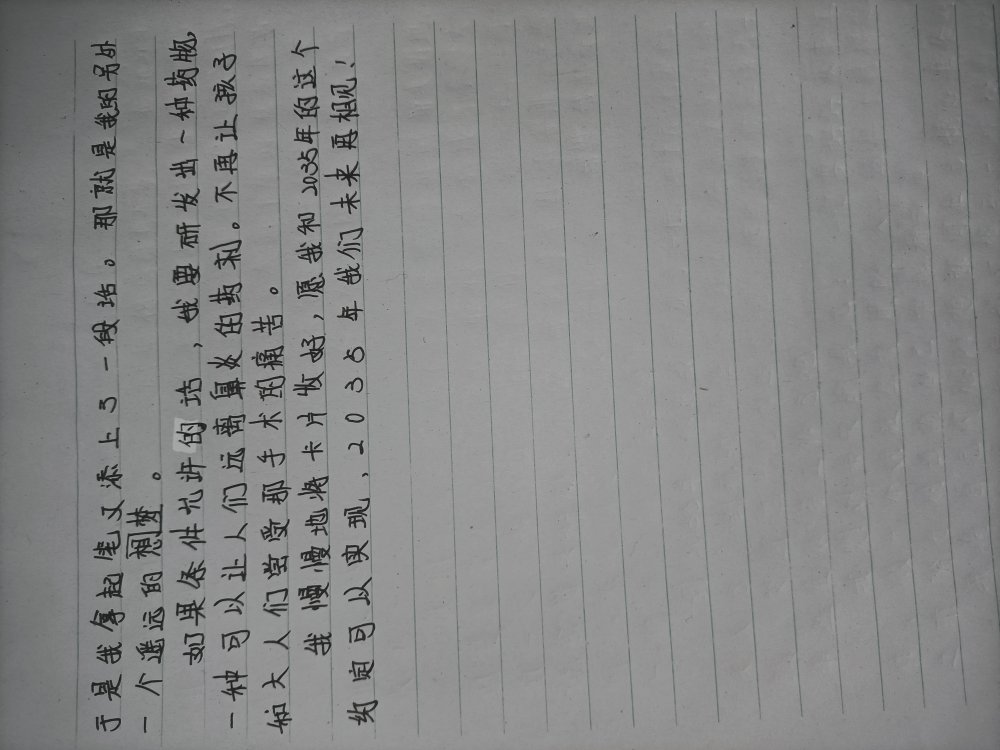 于是我拿起笔又添上了一段话。那就是我的另外
一个遥远的想梦。
如果条件允许的话，我要研发出一种药物，
一种可以让人们远离鼻炎的药剂。不再让孩子
和大人们尝受那手术的痛苦。
我慢慢地将卡片收好，愿我和2035年的这个
约定可以实现，2035年我们未来再相见！